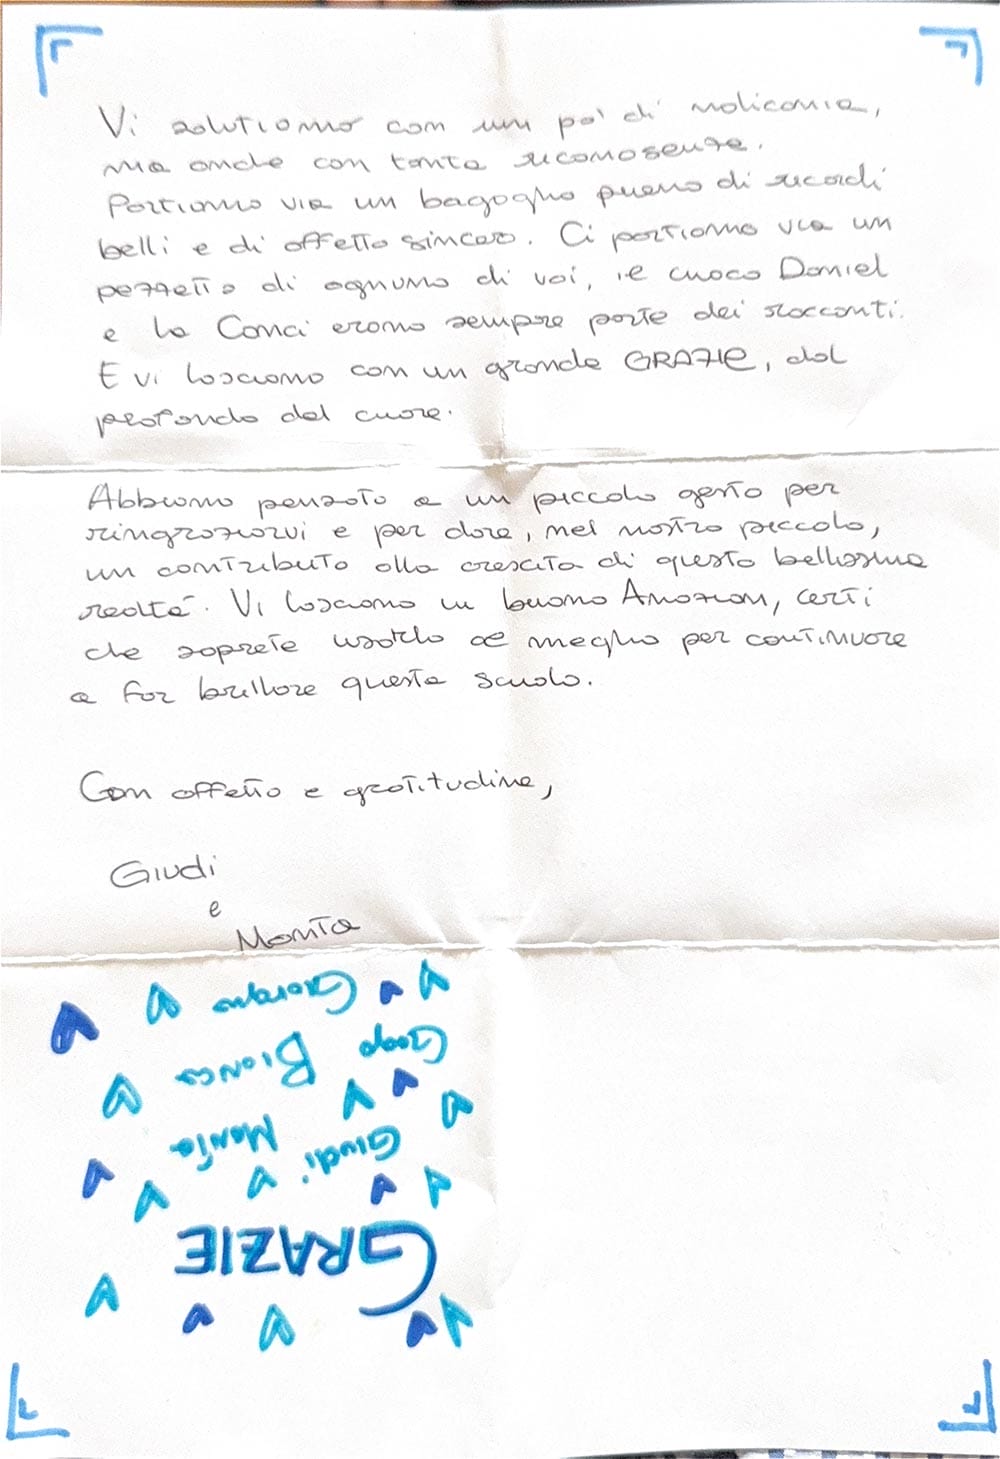 Vi salutiamo con un po' di malinconia,
ma anche con tanta riconoscenza.
Portiamo via un bagaglio pieno di ricordi
belli e di affetto sincero. Ci portiamo via un
pezzetto di ognuno di voi, il cuoco Daniel
e la Conci erano sempre parte dei racconti.
E vi lasciamo con un grande GRAZIE, dal
profondo del cuore.
Abbiamo pensato a un piccolo gesto per
ringraziarvi e per dare, nel nostro piccolo,
un contributo alla crescita di questa bellissima
realtà. Vi lasciamo un buono Amazon, certi
che saprete usarlo al meglio per continuare
a far brillare questa scuola.
Con affetto e gratitudine,
Giudi
e
Marita
GRAZIE
Giudi Marita
Bianca
Giorgio